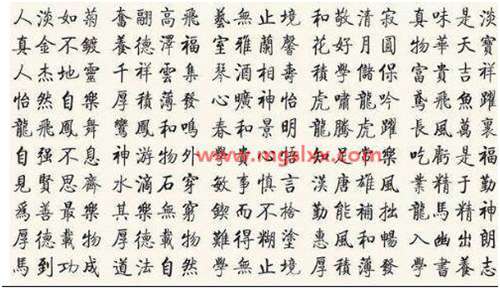 人淡如菊 奮翮高飛 藝無止境 和敬清寂 真味是淡
真金不鍍 養德澤福 室雅蘭馨 花好月圓 物華天寶
人杰地靈 千祥雲集 琴酒相壽 積學儲保 富貴吉祥
怡然自樂 厚積薄發 心曠神怡 虎嘯龍吟 鳶飛魚躍
龍飛鳳舞 鸞鳳和鳴 春和景明 龍騰虎躍 長風萬裏
自强不息 神游物外 學貴 知足樂 吃虧是福
見賢思齊 水滴石穿 敏事慎言 漢唐雄風 業精于勤
為善最樂 其樂無窮 鍥而不捨 勤能補拙 龍馬精神
厚德載物 厚德載物 難得糊塗 惠風和暢 入幽出朗
馬到功成 道法自然 學無止境 厚積薄發 學書養志